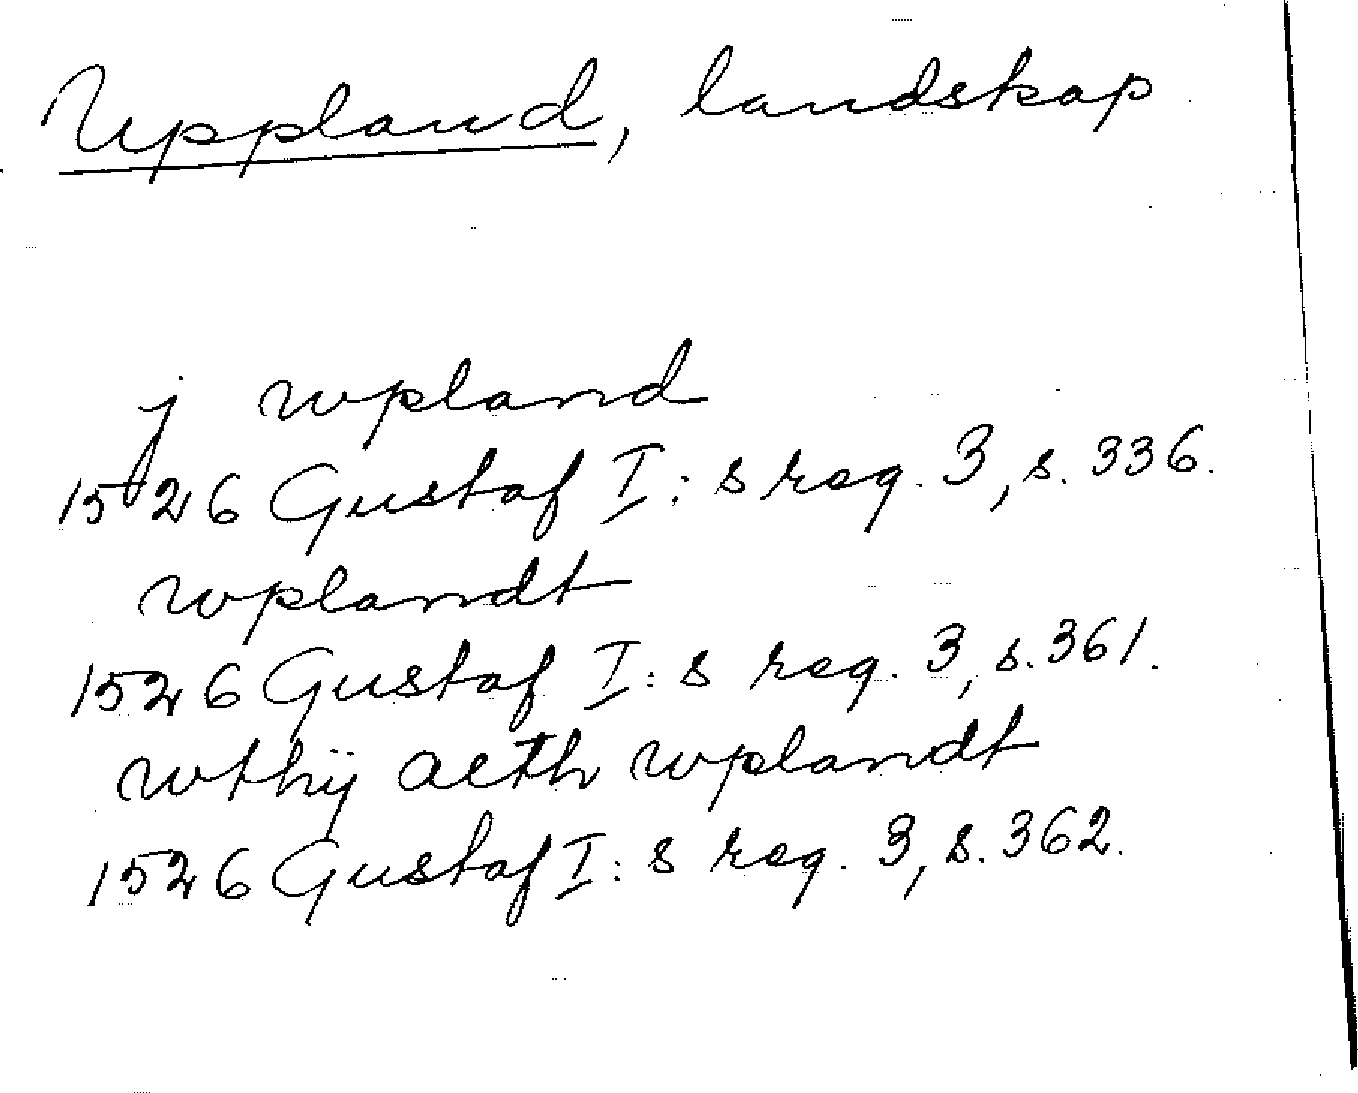 Uppland, landskap
j wpland
1526 Gustaf I: s reg. 3, s. 336.
wplandt
1526 Gustaf I: s reg. 3, s. 361.
wthij aeth wplandt
1526 Gustaf I: s reg. 3, s. 362.